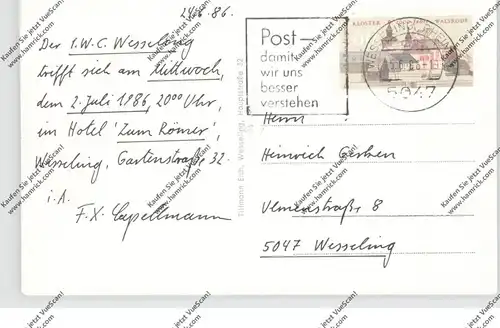 24.6.86.
Der I.W.C. Wesseling
trifft sich am Mittwoch,
dem 2. Juli 1986, 20⁰⁰ Uhr,
im Hotel 'Zum Römer',
Wesseling, Gartenstraße 32.
i.A.
F.X. Capellmann
Tillmann Esh, Wesseling, Hauptstraße 32
Post –
damit
wir uns
besser
verstehen
KLOSTER WALSRODE
WESSELING
5047
Herrn
Heinrich
Ulmenstraße 8
5047 Wesseling
Kaufen Sie jetzt VueScan!
www.hamrick.com